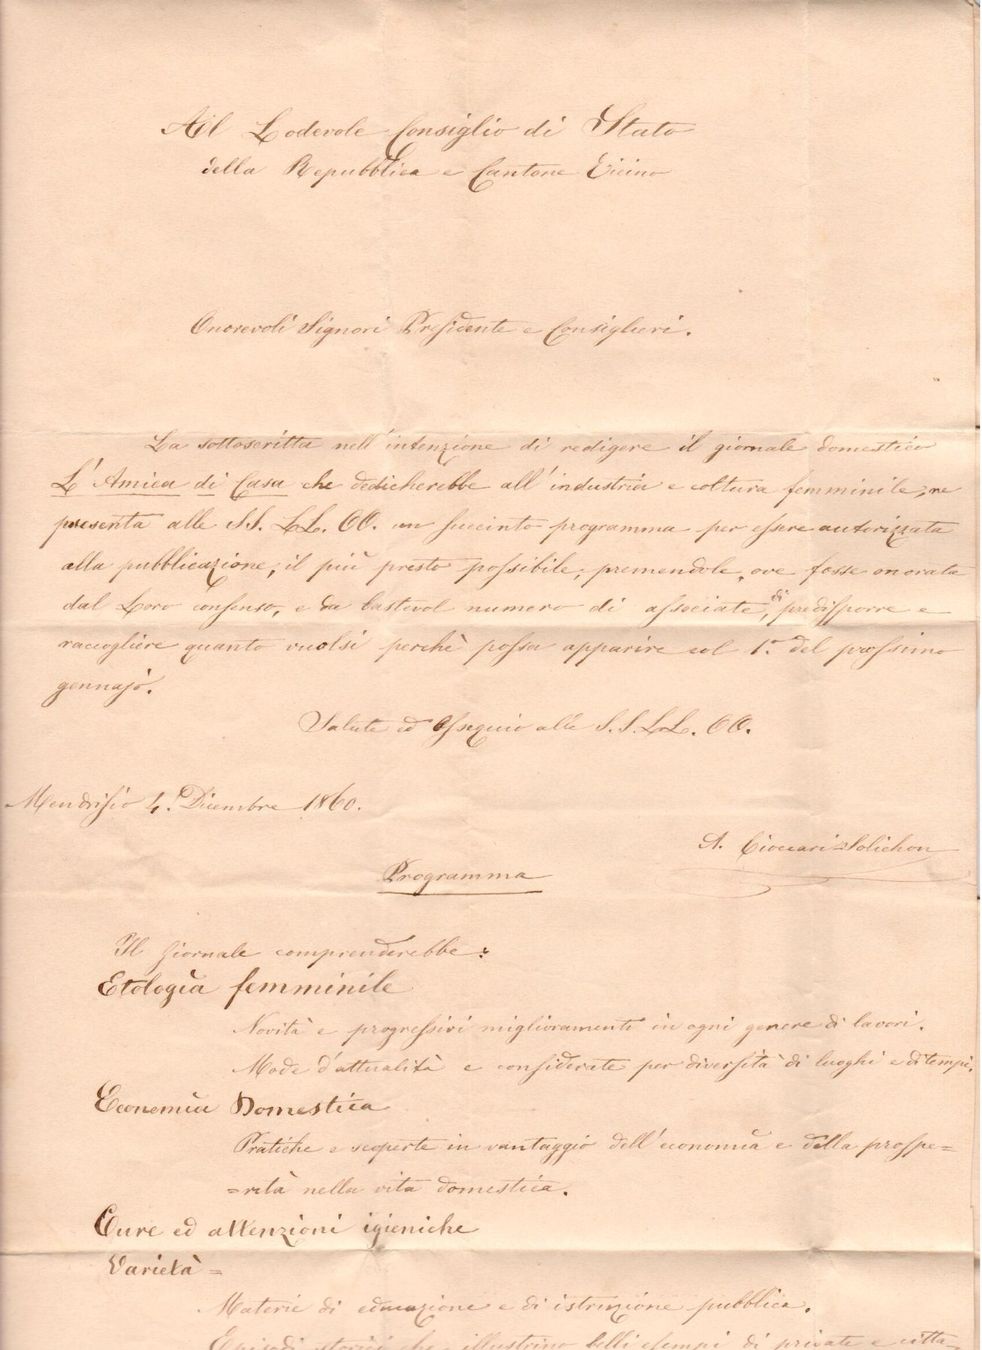 All Lodevole Consiglio di Stato
della Repubblica e Cantone Ticino
Onorevoli Signori Presidente e Consiglieri.
La sottoscritta nell'intenzione di redigere il giornale domestico
L'Amica di Casa che dedicherebbe all'industria e coltura femminile, ne
presenta alle SS. LL. OO. un succinto programma per essere autorizzata
alla pubblicazione, il più presto possibile, premendole, ove fosse onorata
dal Loro consenso, e da bastevol numero di associate, di predisporre e
raccogliere quanto vuolsi perchè possa apparire col 1.° del prossimo
gennajo.
Salute ed Ossequio alle S.S. LL. OO.
Mendrisio 4. Dicembre 1860.
A. Cioccari-Solichon
Programma
Il giornale comprenderebbe:
Etologia femminile
Novità e progressivi miglioramenti in ogni genere di lavori.
Mode d'attualità e considerate per diversità di luoghi e di tempi.
Economia Domestica
Pratiche e scoperte in vantaggio dell'economia e della prospe=
=rità nella vita domestica.
Cure ed attenzioni igieniche
Varietà =
Materie di educazione e di istruzione pubblica.
Episodi storici che illustrino belli esempi di private e citta=